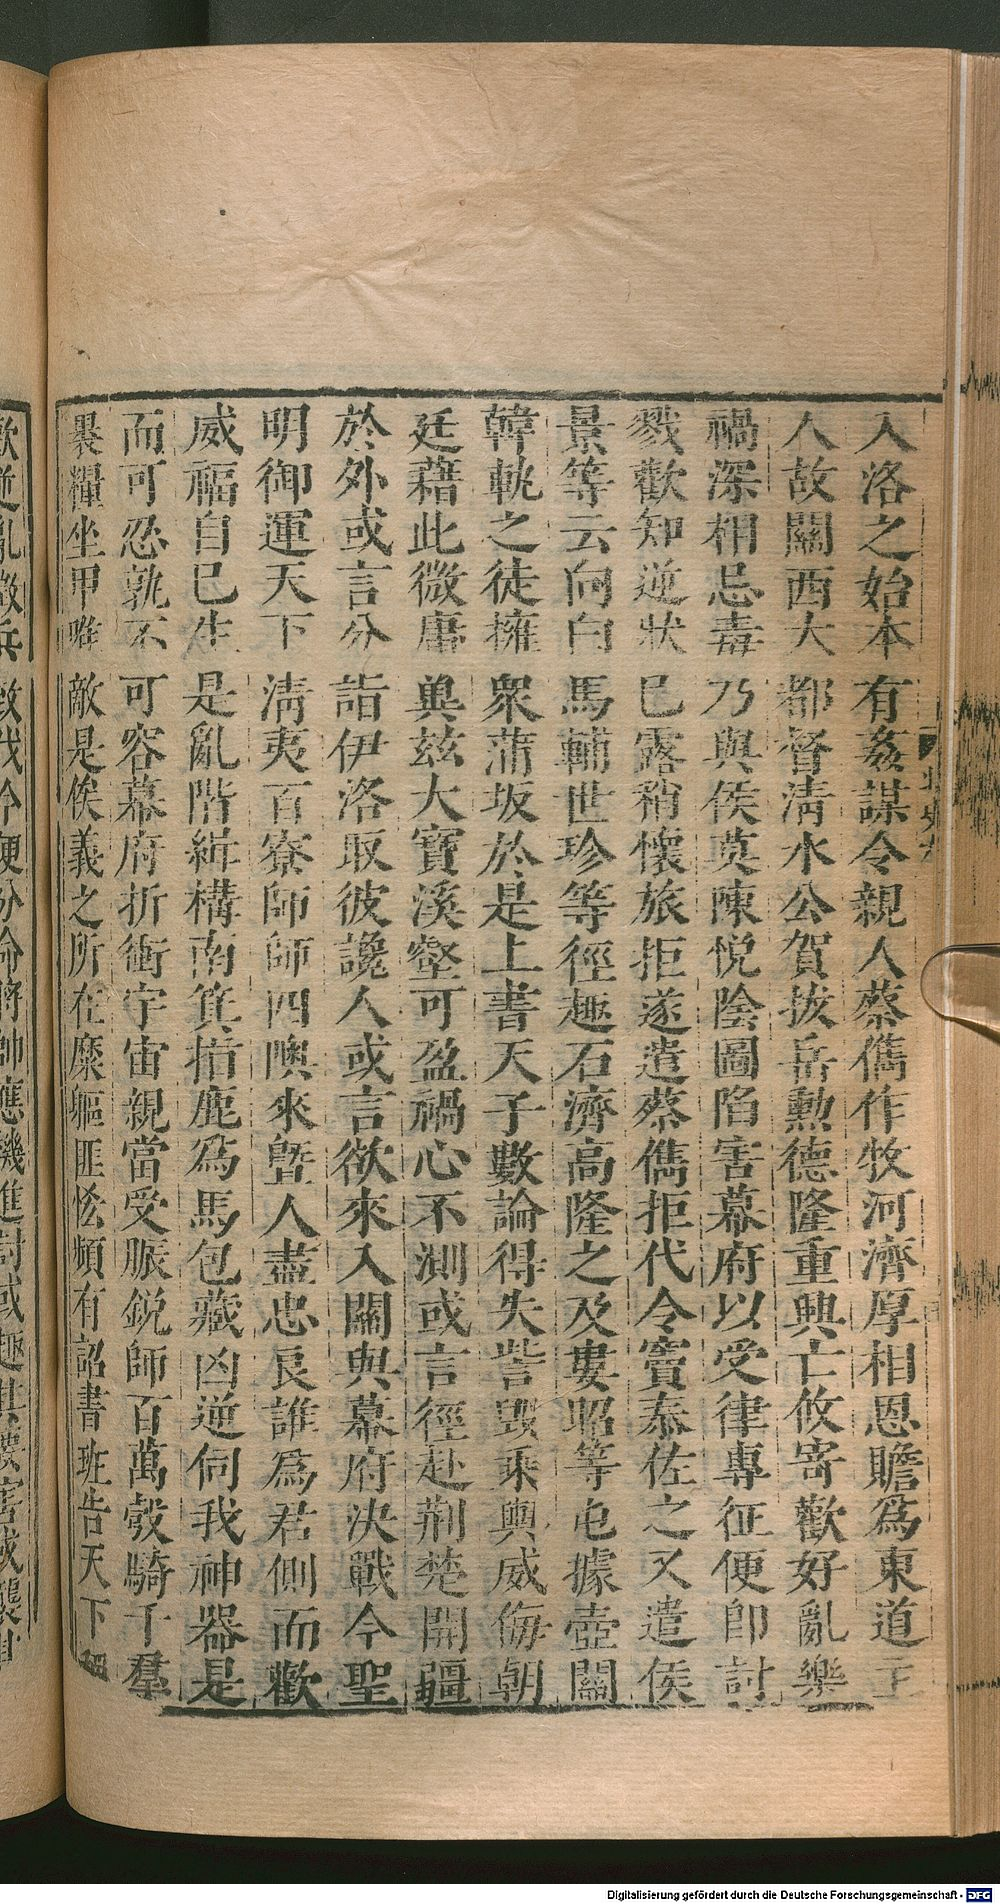 入洛之始本有姦謀令親人蔡儁作牧河濟厚相恩贍爲東道主
人故關西大都督淸水公賀拔岳勲德隆重興亡攸寄歡好亂樂
禍深相忌毒乃與侯莫陳悅陰圖陷害幕府以受律專征便卽討
戮歡知逆狀已露稍懷旅拒遂遣蔡儁拒代令竇泰佐之又遣侯
景等云向白馬輔世珍等徑趣石濟高隆之及婁昭等屯據壺關
韓軌之徒擁衆蒲坂於是上書天子數論得失訾毀乘輿威侮朝
廷藉此微庸兾玆大寶溪壑可盈禍心不測或言徑赴荆楚開疆
於外或言分詣伊洛取彼讒人或言欲來入關與幕府決戰今聖
明御運天下淸夷百寮師師四隩來曁人盡忠良誰爲君側而歡
威福自已生是亂階緝構南箕指鹿爲馬包藏凶逆伺我神器是
而可忍孰不可容幕府折衝宇宙親當受脤銳師百萬彀騎千羣
裹糧坐甲唯敵是俟義之所在糜軀匪恡頻有詔書班吿天下稱
歡逆亂徵兵致伐今便分命將帥應機進討或趣其要害或襲其
Digitalisierung gefördert durch die Deutsche Forschungsgemeinschaft - DFG